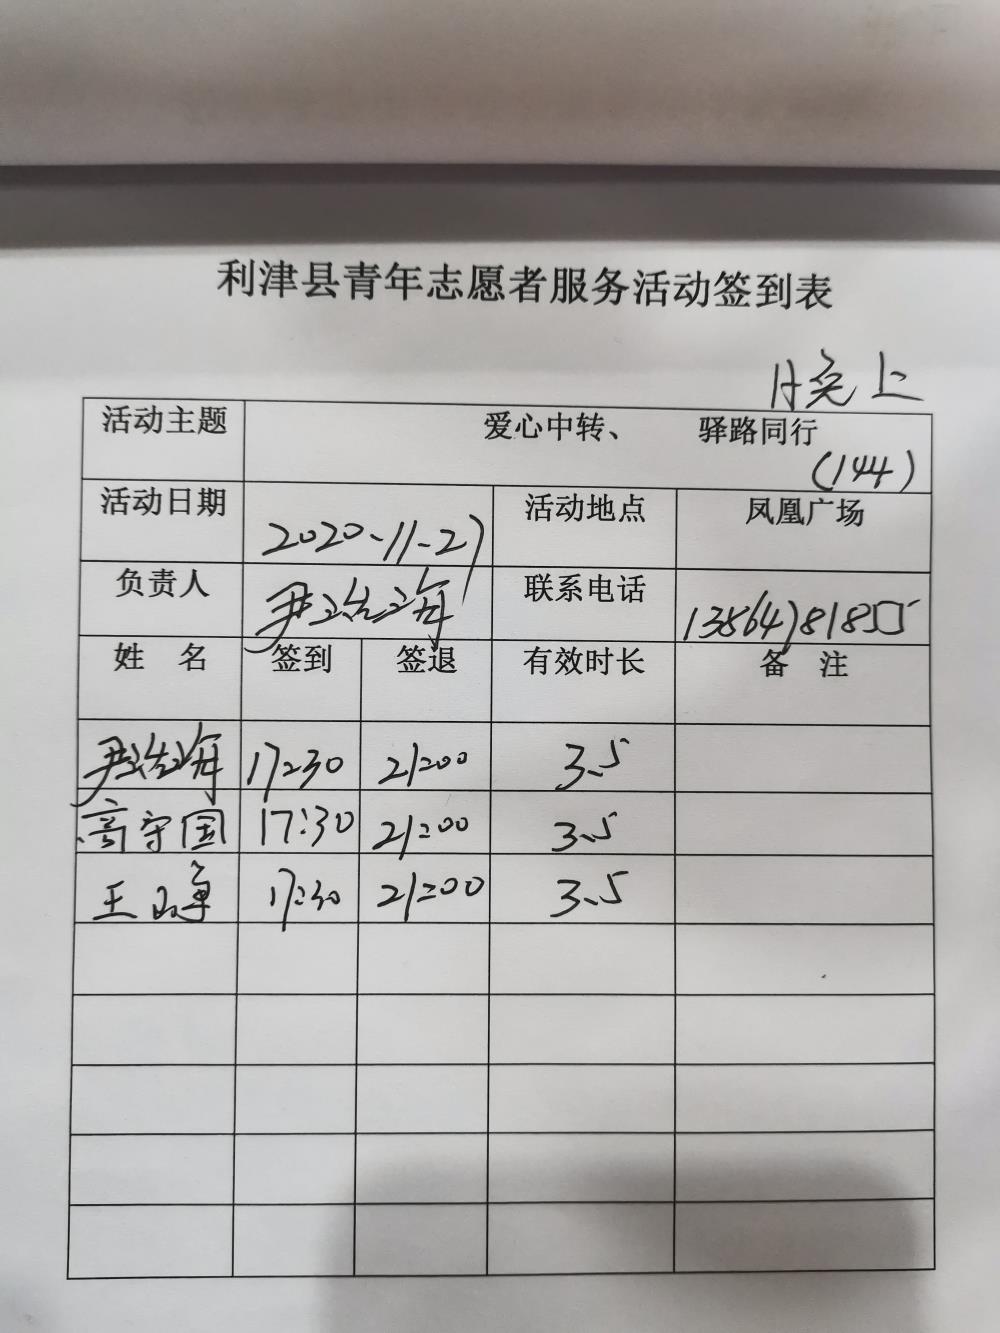 利津县青年志愿者服务活动签到表
晚上
活动主题 爱心中转、 驿路同行
(144)
活动日期 2020-11-27 活动地点 凤凰广场
负责人 尹治海 联系电话 13864781855
姓 名 签到 签退 有效时长 备 注
尹治海 17:30 21:00 3.5
高守国 17:30 21:00 3.5
王峰 17:30 21:00 3.5